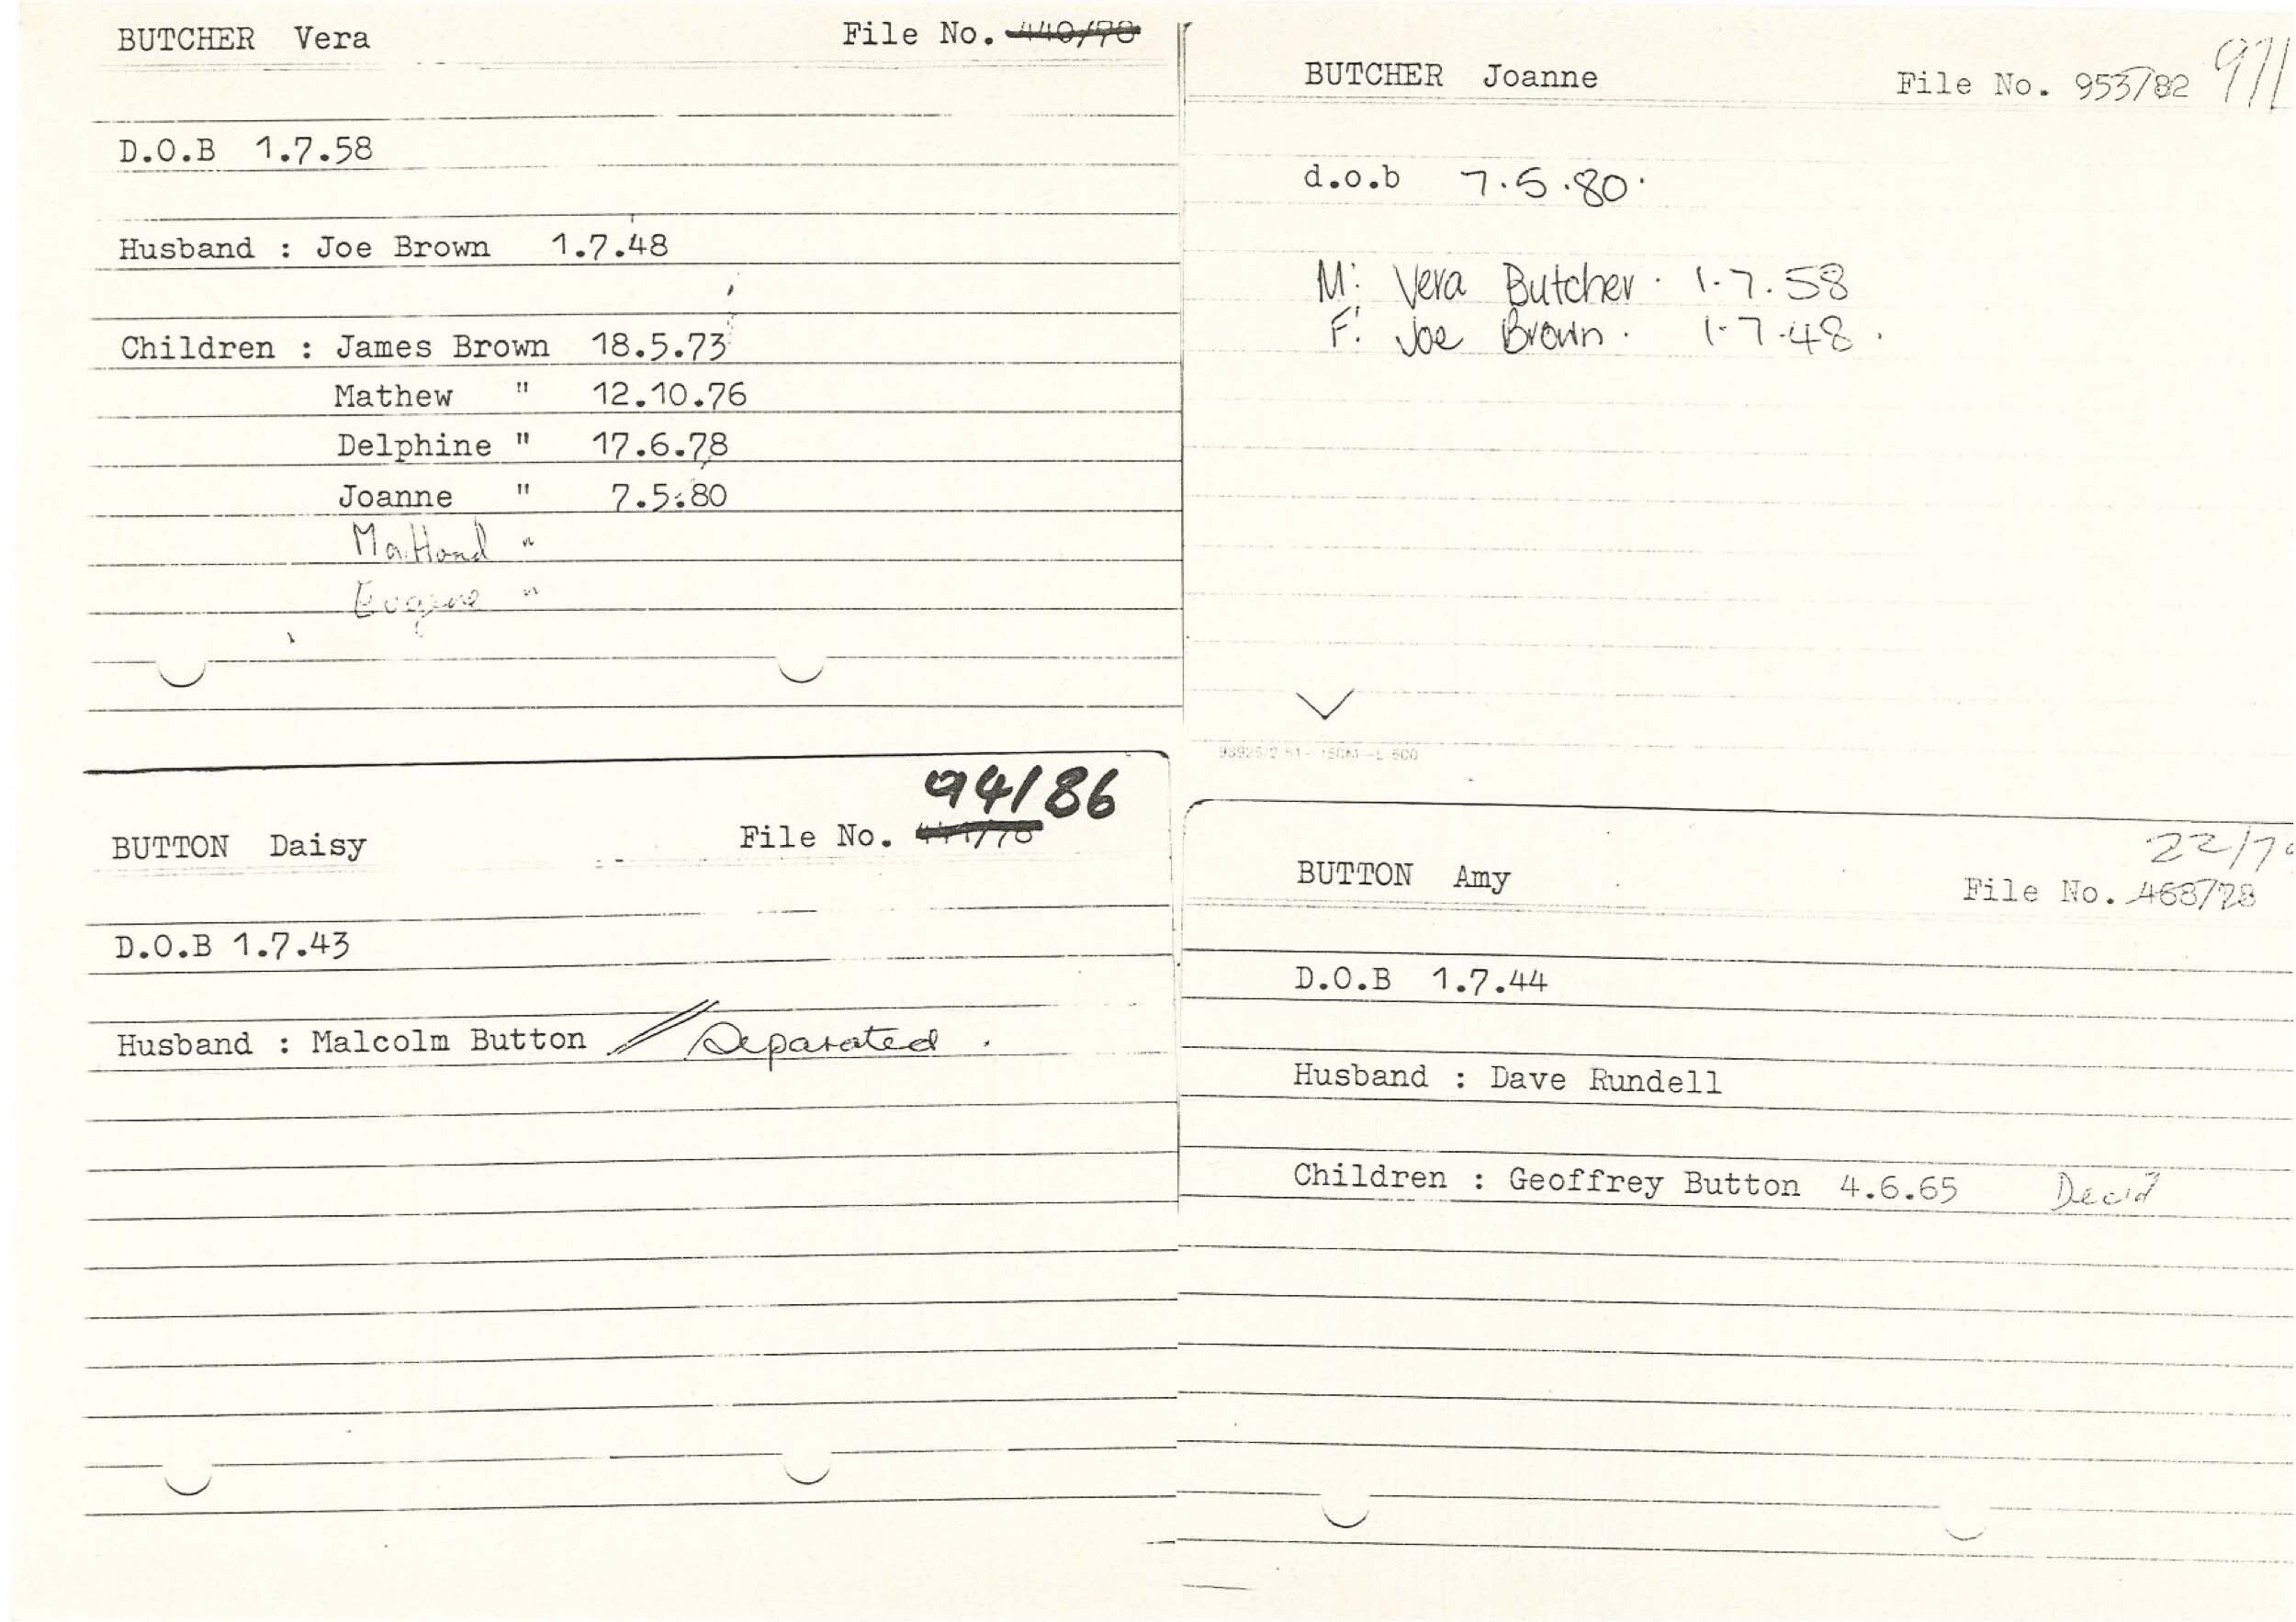 BUTCHER Vera File No. 440/78
D.O.B 1.7.58
Husband : Joe Brown 1.7.48
Children : James Brown 18.5.73
Mathew " 12.10.76
Delphine " 17.6.78
Joanne " 7.5.80
Maitland "
Eugene "
BUTCHER Joanne File No. 953/82
d.o.b 7.5.80.
M: Vera Butcher. 1.7.58
F: Joe Brown. 1.7.48.
94/86
BUTTON Daisy File No.
D.O.B 1.7.43
Husband : Malcolm Button // Separated.
BUTTON Amy File No. 468/78
D.O.B 1.7.44
Husband : Dave Rundell
Children : Geoffrey Button 4.6.65 Dec'd